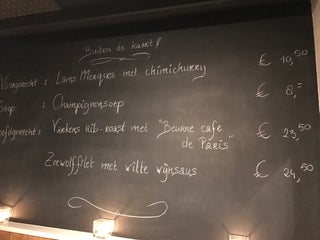 Buiten de kaart!
Voorgerecht: Lams Merguez met chimichurry € 10,50
Soep : Champignonsoep € 8,=
Hoofdgerecht: Varkens rib-roast met "Beurre cafe € 23,50
de Paris"
Zeewolffilet met witte wijnsaus € 24,50